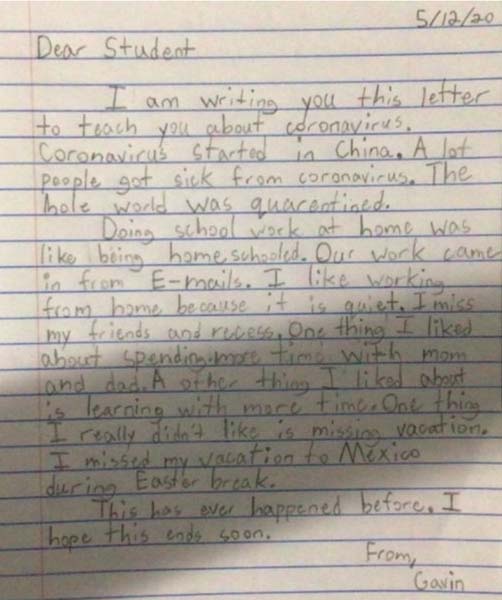 5/12/20
Dear Student
I am writing you this letter
to teach you about coronavirus.
Coronavirus started in China. A lot
people got sick from coronavirus. The
hole world was quarentined.
Doing school work at home was
like being home schooled. Our work came
in from E-mails. I like working
from home because it is quiet. I miss
my friends and recess. One thing I liked
about spending more time with mom
and dad. A other thing I liked about
is learning with more time. One thing
I really didn't like is missing vacation.
I missed my vacation to Mexico
during Easter break.
This has ever happened before. I
hope this ends soon.
From,
Gavin